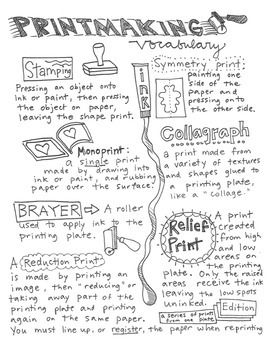 PRINTMAKING
Vocabulary
Stamping
Pressing an object onto
ink or paint, then pressing
the object on paper,
leaving the shape print.
ink
Symmetry print:
painting one
side of the
paper and
pressing onto
the other side.
Monoprint:
a single print
made by drawing into
ink or paint, and rubbing
paper over the surface.
Collagraph
a print made from
a variety of textures
and shapes glued to
a printing plate,
like a "collage."
BRAYER → A roller
used to apply ink to the
printing plate.
Relief
Print
A print
created
from high
and low
areas on
the printing
plate. Only the raised
areas receive the ink
leaving the low spots
uninked.
A Reduction Print
is made by printing an
image, then "reducing" or
taking away part of the
printing plate and printing
again on the same paper.
You must line up, or register, the paper when reprinting
Edition
a series of prints
from one plate